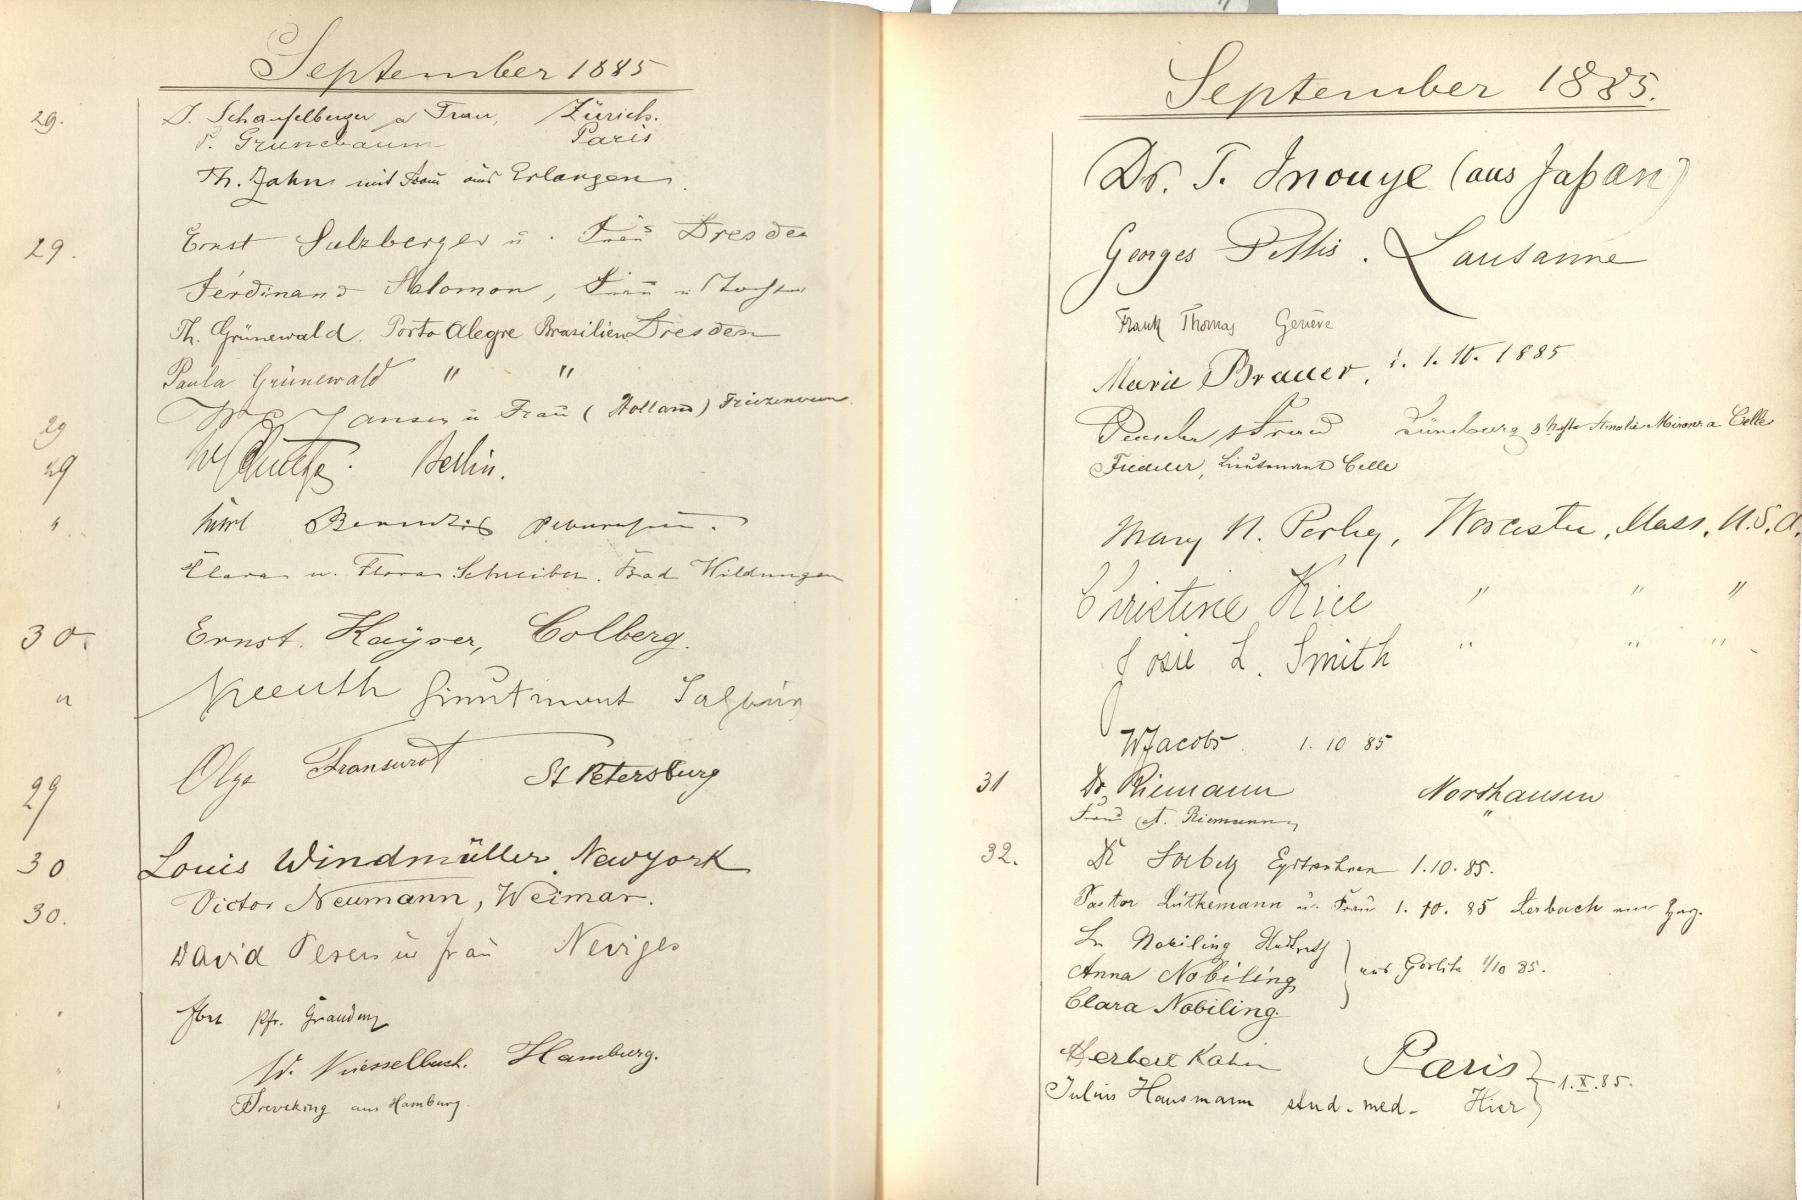 September 1885
29. J. Schaufelberger u Frau, Zürich.
P. Grunebaum Paris
Th. Zahn mit Frau aus Erlangen.
29. Ernst Sulzberger u. Frau Dresden
Ferdinand Salomon, Frau u Tochter
Th. Grünewald. Porto Alegre Brasilien Dresden
Paula Grünewald " "
29 Jansen u Frau (Holland)
29 Berlin.
"
Clara u. Flora Schreiber. Bad Wildungen
30. Ernst Kaÿser, Colberg.
"
29 Olga St Petersburg
30 Louis Windmüller Newyork
30. Victor Neumann, Weimar.
David Peters u frau Neviges
" Pfr. Graudenz
" W. Nüsselbach. Hamburg.
" Sieveking aus Hamburg.
September 1885.
Dr. T. Inouye (aus Japan)
Georges Lausanne
Frank Thomas Genève
Marie Brauer, 1. 10. 1885
Lüneburg Celle
Fiedeler, Lieutenant Celle
Mary N. Perley, Worcester, Mass. U.S.A.
Christine Rice " " "
Josie L. Smith " " "
WJacobs 1. 10 85
31 Dr. Riemann Nordhausen
Frau A. Riemann "
32. Dr Eydtkuhnen 1.10.85.
Pastor Lütkemann u. Frau 1. 10. 85 Lerbach am Harz.
Nobiling
Anna Nobiling aus Görlitz 1/10 85.
Clara Nobiling.
Herbert Kahn Paris
Julius Hausmann stud. med. Hier 1. X. 85.